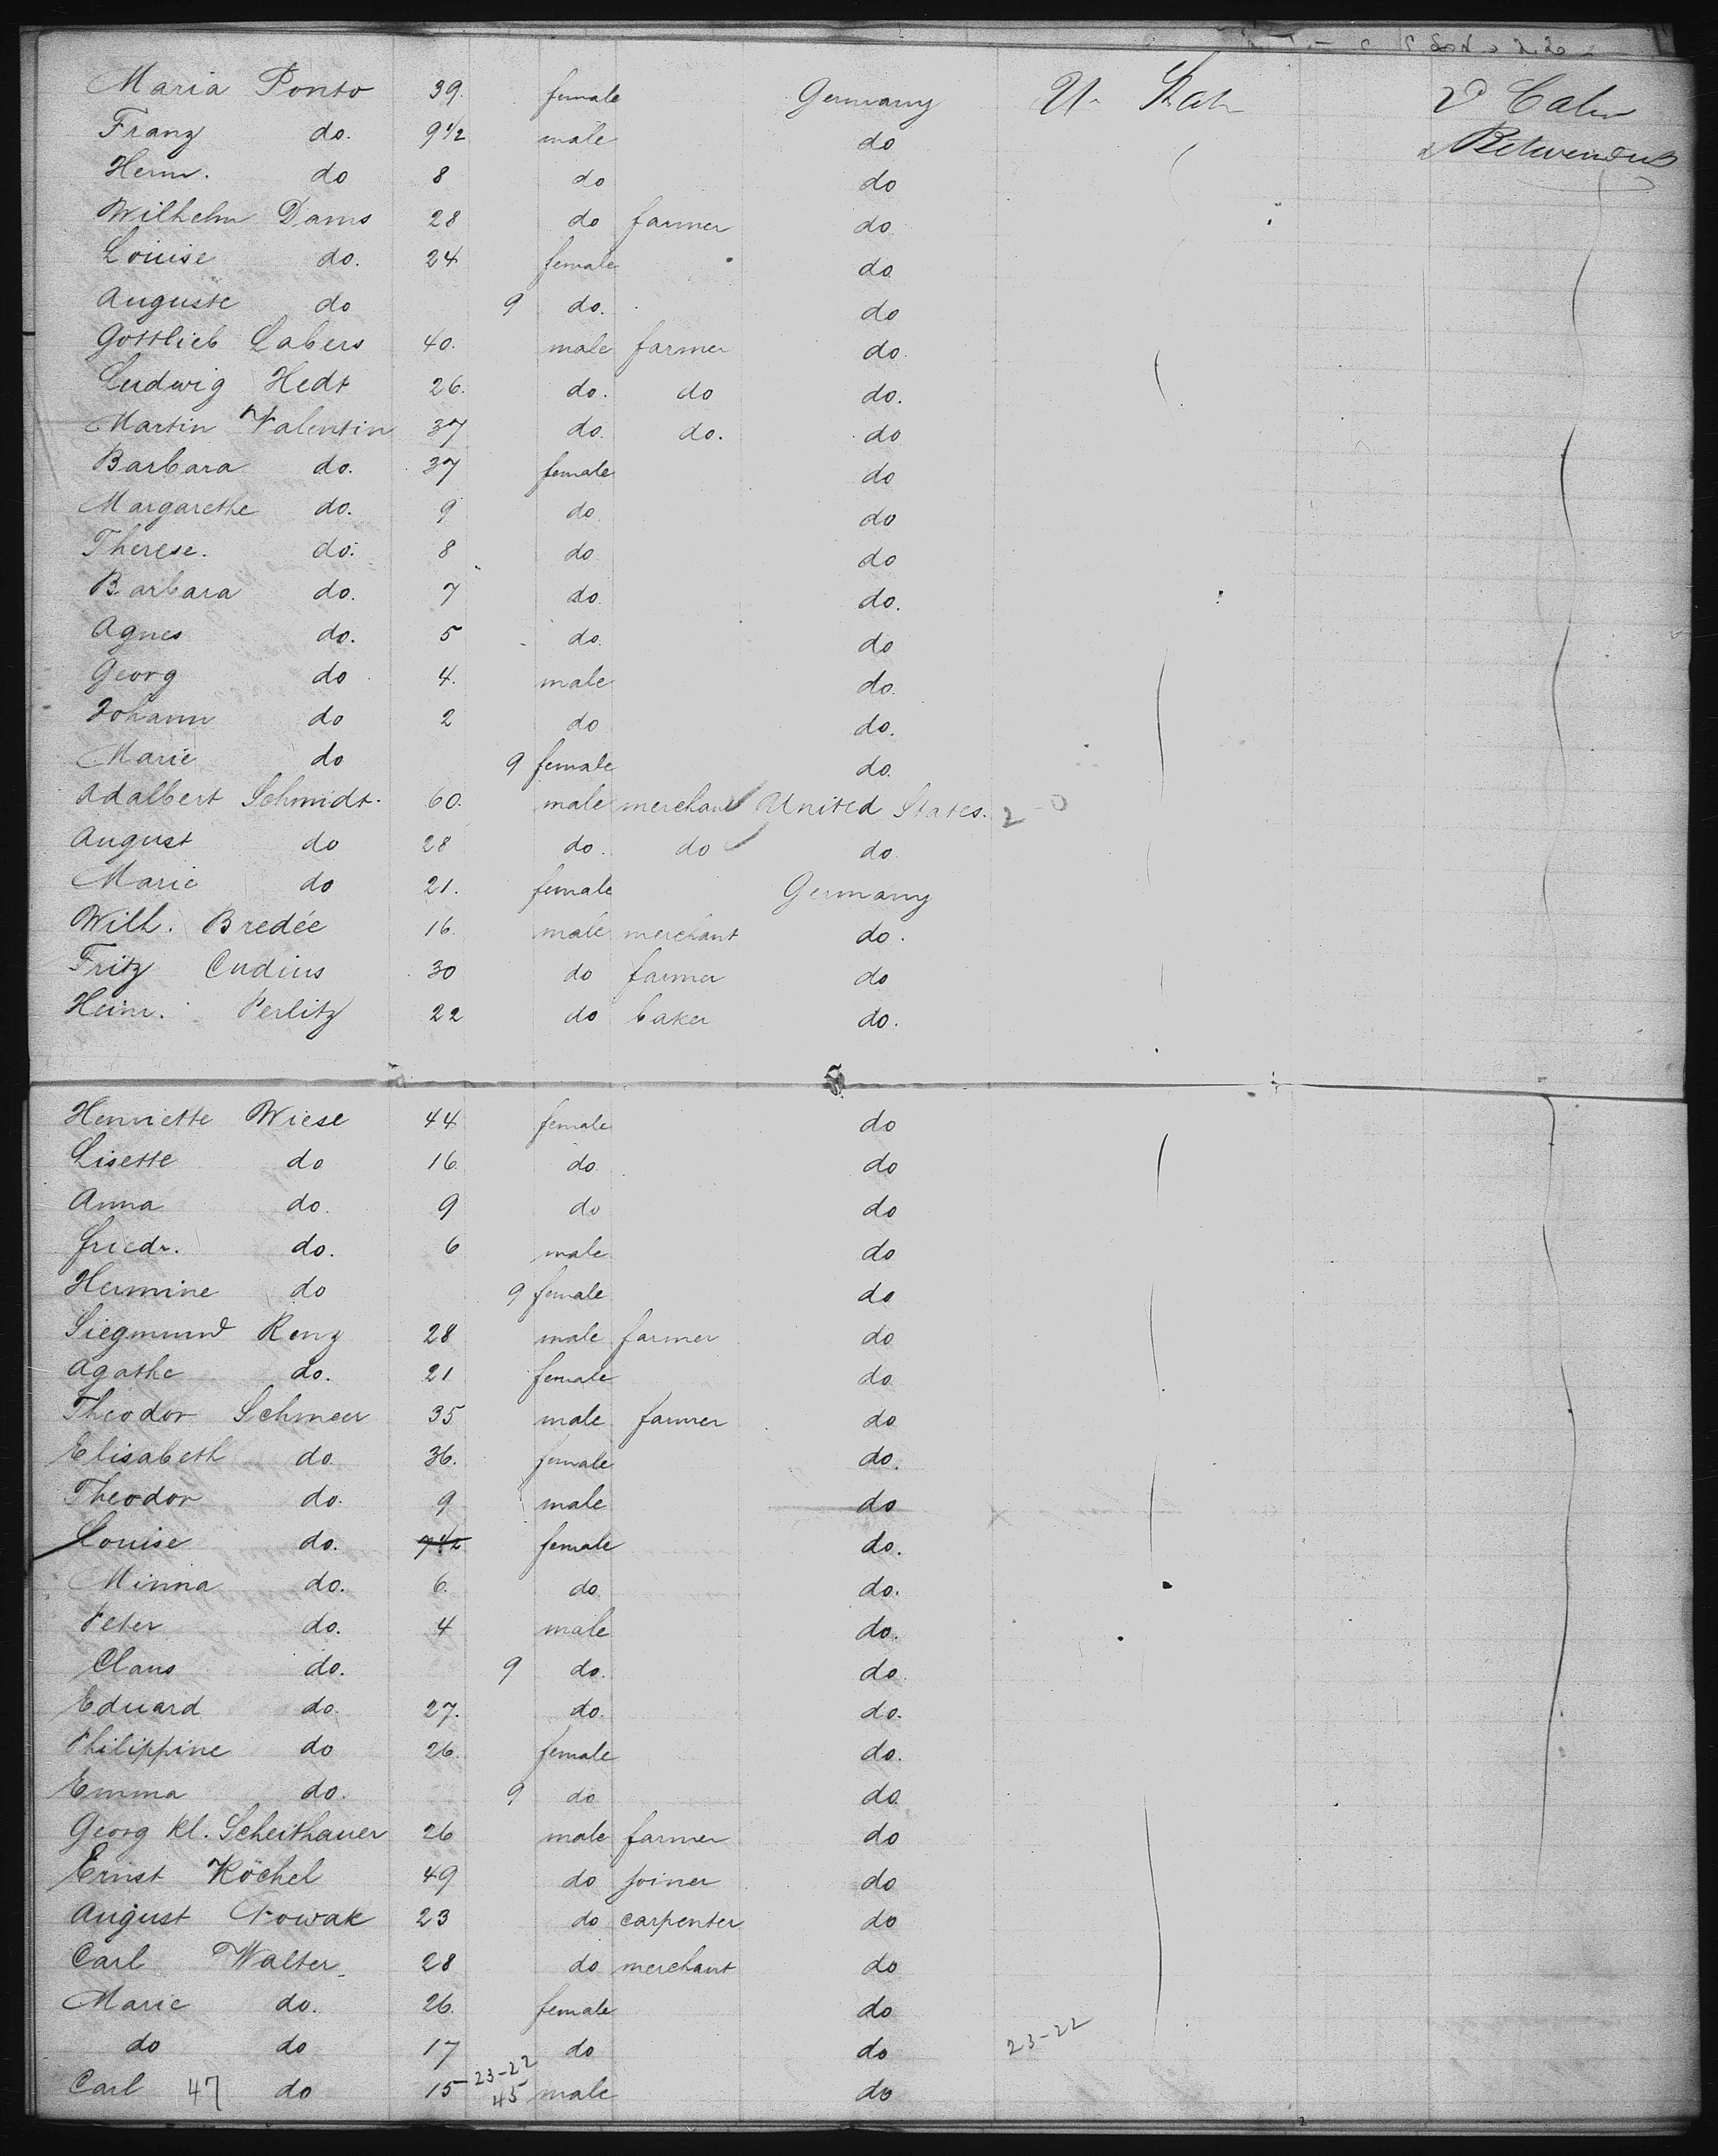 Maria Ponto 39. female Germany U. Stat 2d Cabin
Franz do. 9 1/2 male do & Betweendeck
Herm. do 8 do do
Wilhelm Dams 28 do farmer do
Louise do. 24 female do
Auguste do 9 do. do
Gottlieb Labers 40. male farmer do.
Ludwig Hedt 26. do. do do.
Martin Valentin 37 do. do. do
Barbara do. 37 female do
Margarethe do. 9 do do
Therese. do. 8 do do
Barbara do. 7 do do.
Agnes do. 5 do. do
Georg do 4. male do.
Johann do 2 do do.
Marie do 9 female do.
Adalbert Schmidt. 60. male merchant United States. 2-0
August do 28 do. do do.
Marie do 21. female Germany
Wilh. Bredée 16. male merchant do.
Fritz Cudius 30 do farmer do
Heinr. Perlitz 22 do baker do.
Henriette Wiese 44 female do
Lisette do 16. do do
Anna do. 9 do do
Friedr. do. 6 male do
Hermine do 9 female do
Siegmund Renz 28 male farmer do
Agathe do. 21 female do
Theodor Schmeer 35 male farmer do
Elisabeth do 36. female do.
Theodor do. 9 male do
Louise do. 7 1/2 female do.
Minna do. 6. do do.
Peter do. 4 male do.
Claus do. 9 do. do.
Eduard do. 27. do. do.
Philippine do 26. female do.
Emma do. 9 do do.
Georg Kl. Scheithauer 26 male farmer do
Ernst Köchel 49 do joiner do
August Nowak 23 do carpenter do
Carl Walter 28 do merchant do
Marie do. 26. female do
do do 17 do do 23-22
23-22
Carl 47 do 15 45 male do